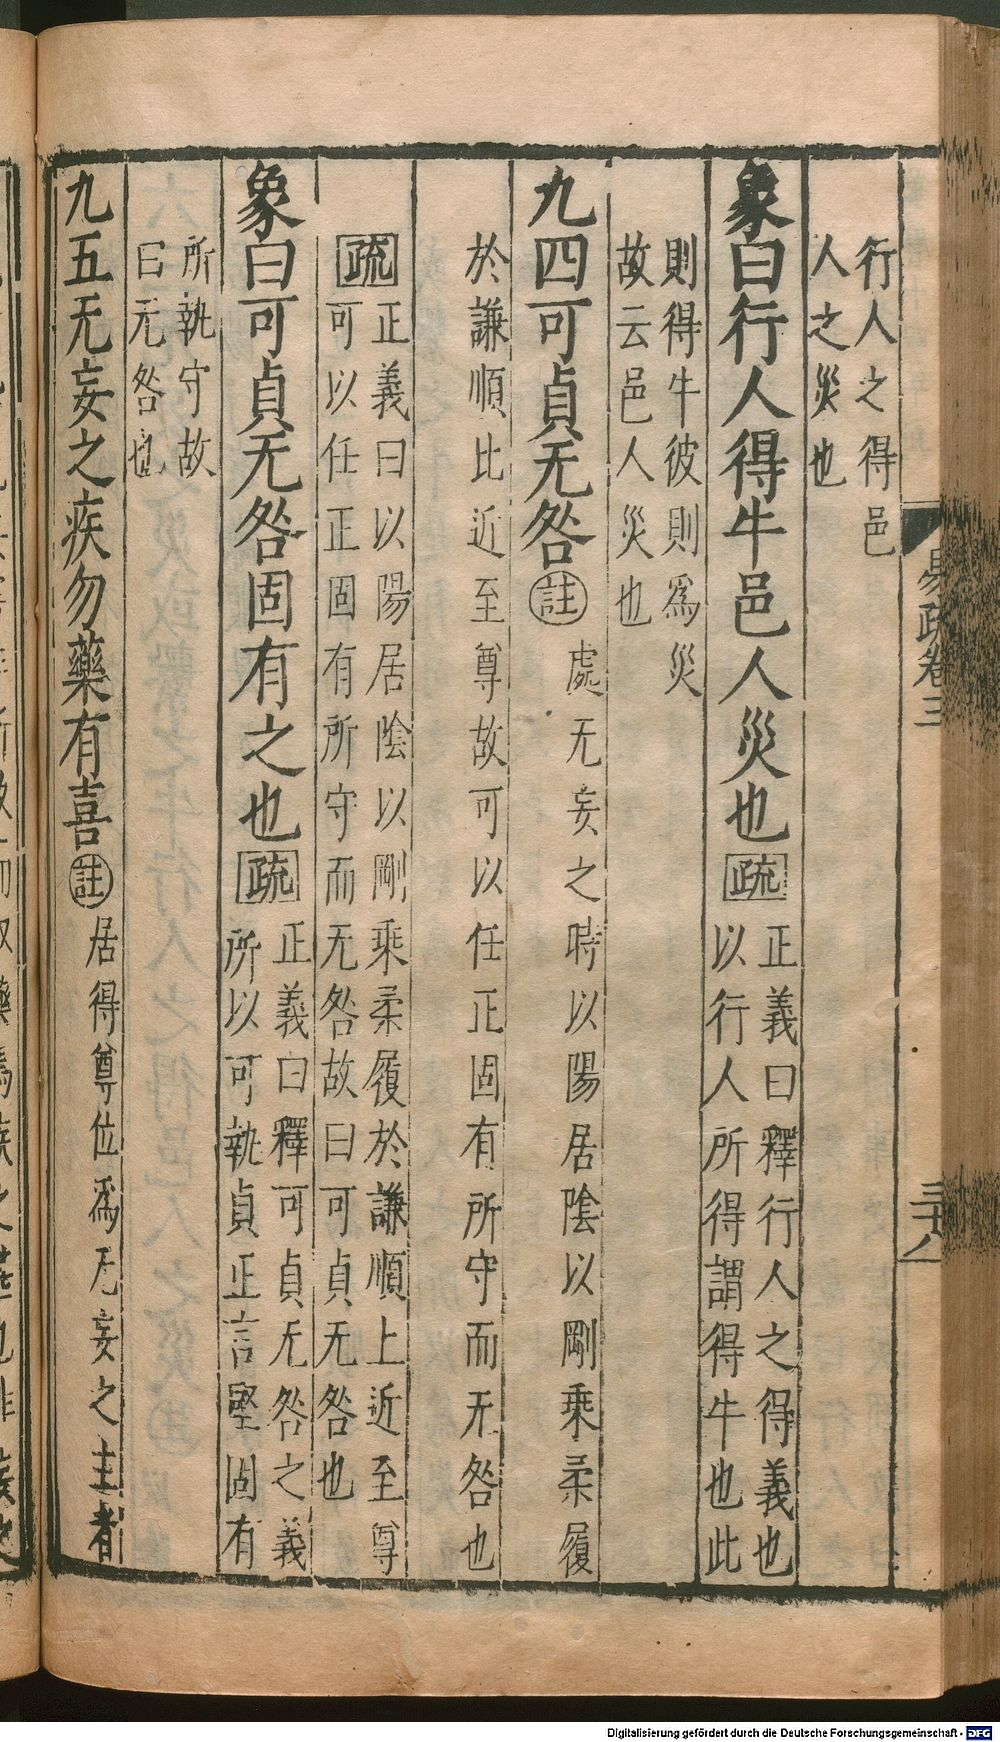 易疏卷三
三十八
行人之得邑
人之災也
象曰行人得牛邑人災也疏
正義曰釋行人之得義也
以行人所得謂得牛也此
則得牛彼則爲災
故云邑人災也
九四可貞无咎註
處无妄之時以陽居陰以剛乘柔履
於謙順比近至尊故可以任正固有所守而无咎也
疏
正義曰以陽居陰以剛乘柔履於謙順上近至尊
可以任正固有所守而无咎故曰可貞无咎也
象曰可貞无咎固有之也疏
正義曰釋可貞无咎之義
所以可執貞正言堅固有
所執守故
曰无咎也
九五无妄之疾勿藥有喜註
居得尊位爲无妄之主者
Digitalisierung gefördert durch die Deutsche Forschungsgemeinschaft - DFG